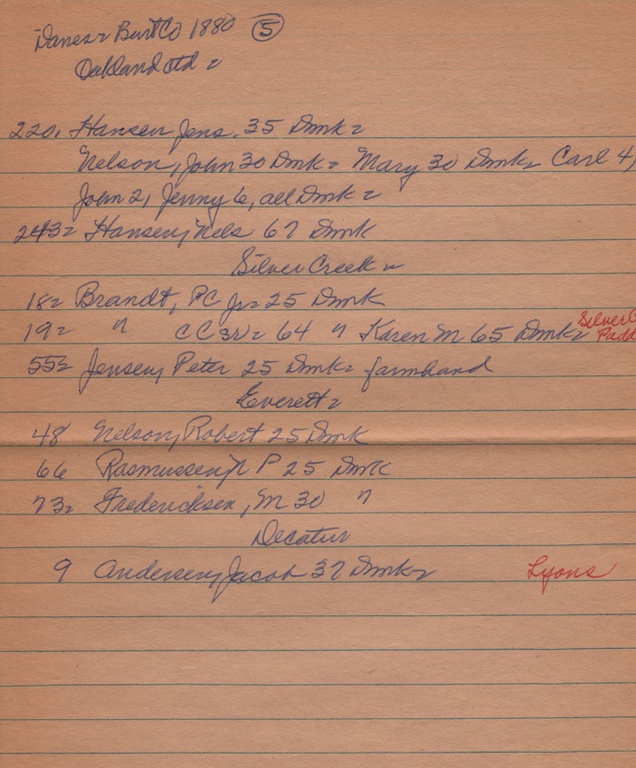 Danes Burt Co 1880 ⑤
Oakland
220. Hansen Jens, 35 Dmk
Nelson, John 30 Dmk Mary 30 Dmk Carl 4,
John 2, Jenny 6, all Dmk
243 Hansen, Nels 67 Dmk
Silver Creek
18 Brandt, PC Jr 25 Dmk
19 " CC Sr 64 " Karen M 65 Dmk
Silver C
Padd
55 Jensen, Peter 25 Dmk farmhand
Everett
48 Nelson, Robert 25 Dmk
66 Rasmussen, N P 25 Dmk
73 Fredericksen, M 30 "
Decatur
9 Andersen, Jacob 37 Dmk
Lyons